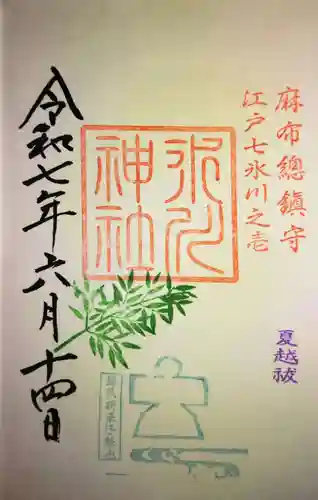 麻布總鎮守
江戸七氷川之壱
氷川
神社
夏越祓
令和七年六月十四日